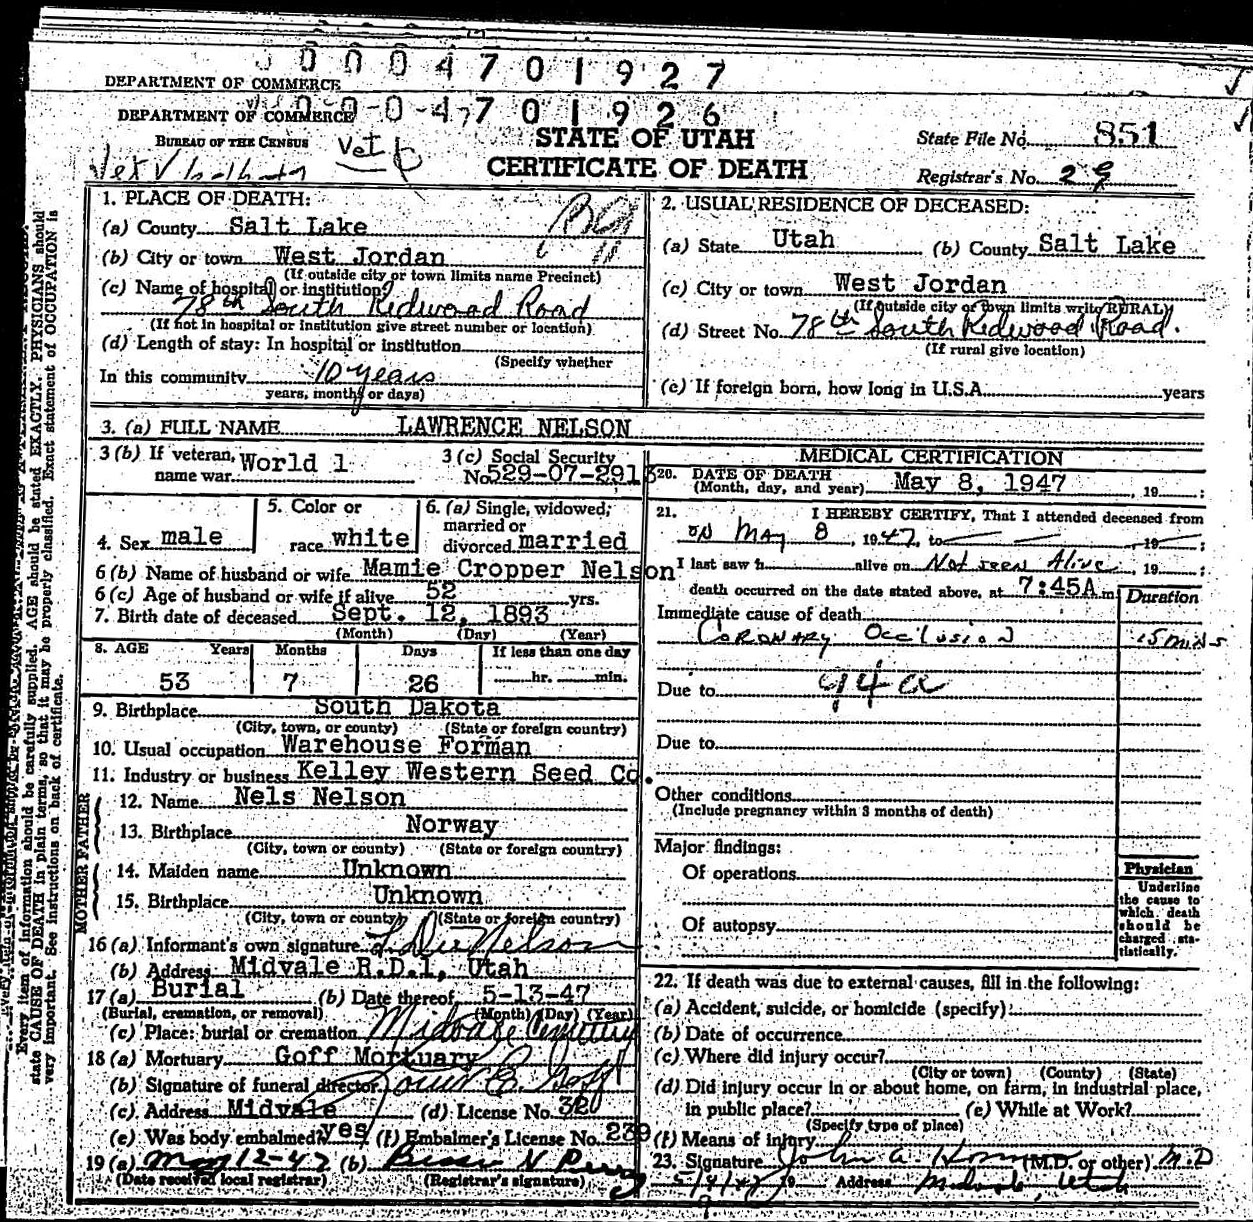 0 0 0 4 7 0 1 9 2 7
DEPARTMENT OF COMMERCE
0 0 0 4 7 0 1 9 2 6
DEPARTMENT OF COMMERCE
BUREAU OF THE CENSUS
Vet
STATE OF UTAH
CERTIFICATE OF DEATH
State File No. 851
Registrar's No. 29
1. PLACE OF DEATH:
(a) County Salt Lake
(b) City or town West Jordan
(If outside city or town limits name Precinct)
(c) Name of hospital or institution?
78th South Redwood Road
(If not in hospital or institution give street number or location)
(d) Length of stay: In hospital or institution
(Specify whether
In this community 10 years
years, months or days)
2. USUAL RESIDENCE OF DECEASED:
(a) State Utah (b) County Salt Lake
(c) City or town West Jordan
(If outside city or town limits write RURAL)
(d) Street No. 78th South Redwood Road.
(If rural give location)
(e) If foreign born, how long in U.S.A. years
3. (a) FULL NAME LAWRENCE NELSON
3 (b) If veteran, name war World 1
3 (c) Social Security No. 529-07-2913
4. Sex male
5. Color or race white
6. (a) Single, widowed, married or divorced married
6 (b) Name of husband or wife Mamie Cropper Nelson
6 (c) Age of husband or wife if alive 52 yrs.
7. Birth date of deceased Sept. 12, 1893
(Month) (Day) (Year)
8. AGE Years Months Days If less than one day
53 7 26 hr. min.
9. Birthplace South Dakota
(City, town, or county) (State or foreign country)
10. Usual occupation Warehouse Forman
11. Industry or business Kelley Western Seed Co.
FATHER
12. Name Nels Nelson
13. Birthplace Norway
(City, town or county) (State or foreign country)
MOTHER
14. Maiden name Unknown
15. Birthplace Unknown
(City, town or county) (State or foreign country)
16 (a) Informant's own signature Nelson
(b) Address Midvale R.D.1, Utah
17 (a) Burial (b) Date thereof 5-13-47
(Burial, cremation, or removal) (Month) (Day) (Year)
(c) Place: burial or cremation Midvale Cemetery
18 (a) Mortuary Goff Mortuary
(b) Signature of funeral director Goff
(c) Address Midvale (d) License No. 320
(e) Was body embalmed? yes (f) Embalmer's License No. 239
19 (a) May 12-47 (b)
(Date received local registrar) (Registrar's signature)
MEDICAL CERTIFICATION
20. DATE OF DEATH
(Month, day, and year) May 8, 1947, 19 ;
21. I HEREBY CERTIFY, That I attended deceased from
on May 8, 1947, to , 19 ;
I last saw h alive on Not seen Alive, 19 ;
death occurred on the date stated above, at 7:45A m
Duration
Immediate cause of death
Coronary Occlusion 15 mins
Due to 94a
Due to
Other conditions
(Include pregnancy within 3 months of death)
Major findings:
Of operations
Of autopsy
Physician
Underline the cause to which death should be charged statistically.
22. If death was due to external causes, fill in the following:
(a) Accident, suicide, or homicide (specify)
(b) Date of occurrence
(c) Where did injury occur?
(City or town) (County) (State)
(d) Did injury occur in or about home, on farm, in industrial place,
in public place? (e) While at Work?
(Specify type of place)
(f) Means of injury
23. Signature John A. (M.D. or other) M.D
19 Address Midvale, Utah
Every item of information should be carefully supplied. AGE should be stated EXACTLY. PHYSICIANS should
state CAUSE OF DEATH in plain terms, so that it may be properly classified. Exact statement of OCCUPATION is
very important. See instructions on back of certificate.